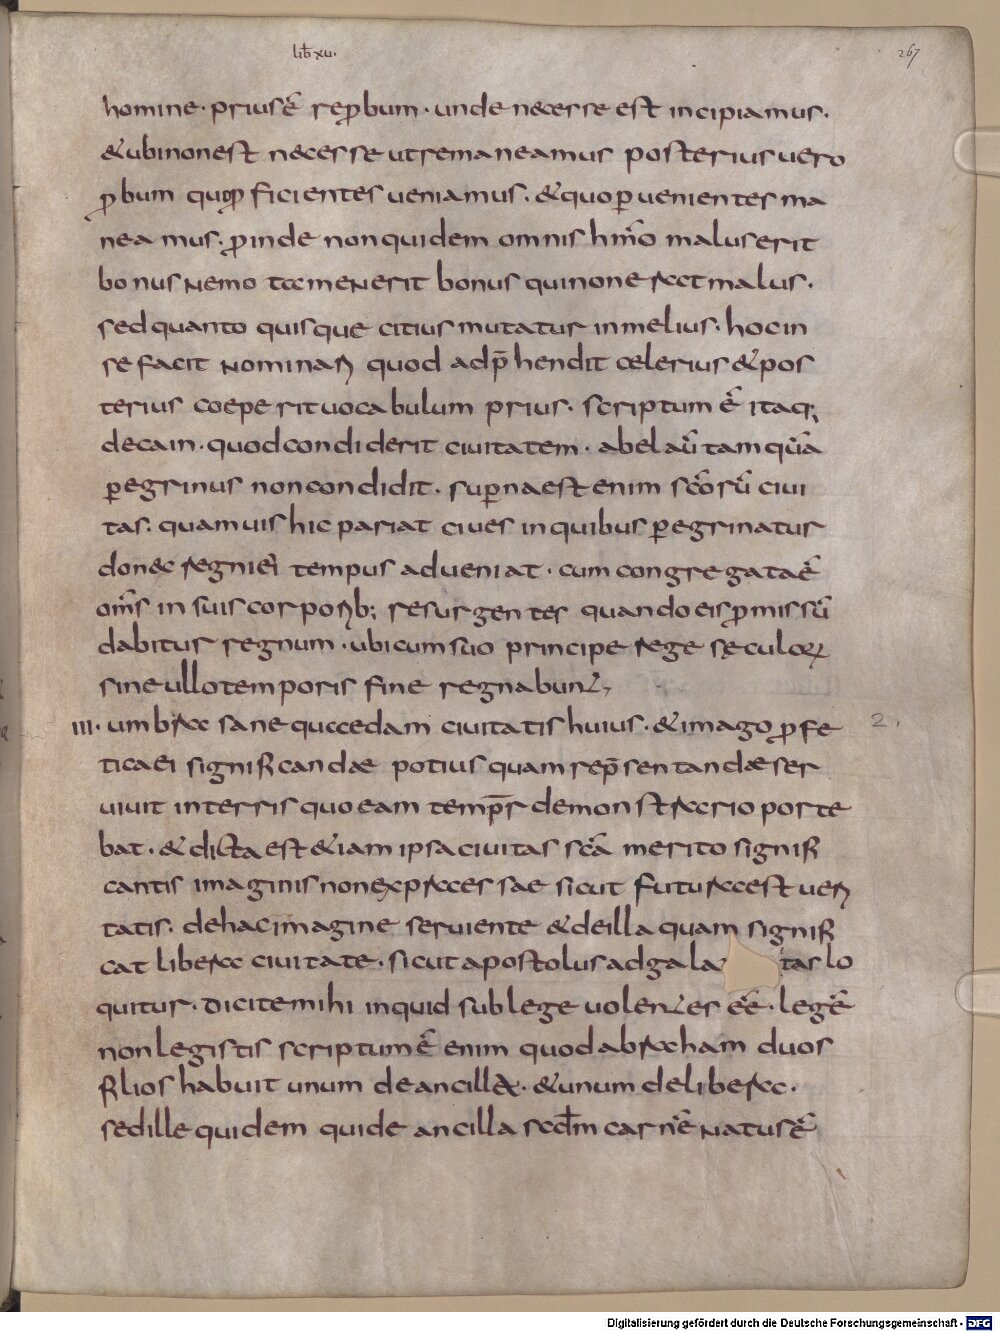 lib̄ xv.
267
homine · prius ē̓ rep̱bum · unde necesse est incipiamus ·
& ubi non est necesse ut remaneamus posterius uero
p̱bum quo p̱ficientes ueniamus · & quo ꝑuenientes ma
neamus · p̱inde non quidem omnis hm̄o malus erit
bonus nemo tamen erit bonus qui non erat malus ·
sed quanto quisque citius mutatur in melius · hoc in
se facit nominari quod adp̄hendit celerius & pos
teriùs coeperit uocabulum prius · scriptum ē̓ itaq;
de cain · quod condiderit ciuitatem · abel aū tamquā
ꝑegrinus non condidit · suꝑna est enim sc̄orū ciui
tas · quamuis hic pariat ciues in quibus ꝑegrinatur
donec regni ei tempus adueniat · cum congregata ē̓
om̄s in suis corporib; resurgentes quando eis p̱missū
dabitur regnum · ubi cum suo principe rege sęculoꝝ
sine ullo temporis fine regnabunt,
III· umbra sane quaedam ciuitatis huius · & imago p̱fe
tica ei significandae potius quam rep̄sentandae ser
uiuit in terris quo eam temp̄r demonstrari oporte
bat · & dicta est & iam ipsa ciuitas sc̄a merito signifi
cantis imaginis non expressae sicut futura est ueri
tatis · de hac imagine seruiente & de illa quam signifi
cat libera ciuitate · sicut apostolus ad gala tas lo
quitur · dicite mihi inquid sub lege uolentes ēē · legē
non legistis scriptum ē̓ enim quod abraham duos
filios habuit unum de ancilla · & unum de libera ·
sed ille quidem qui de ancilla scd̄m carnē natus ē̓
2 .
Digitalisierung gefördert durch die Deutsche Forschungsgemeinschaft - DFG